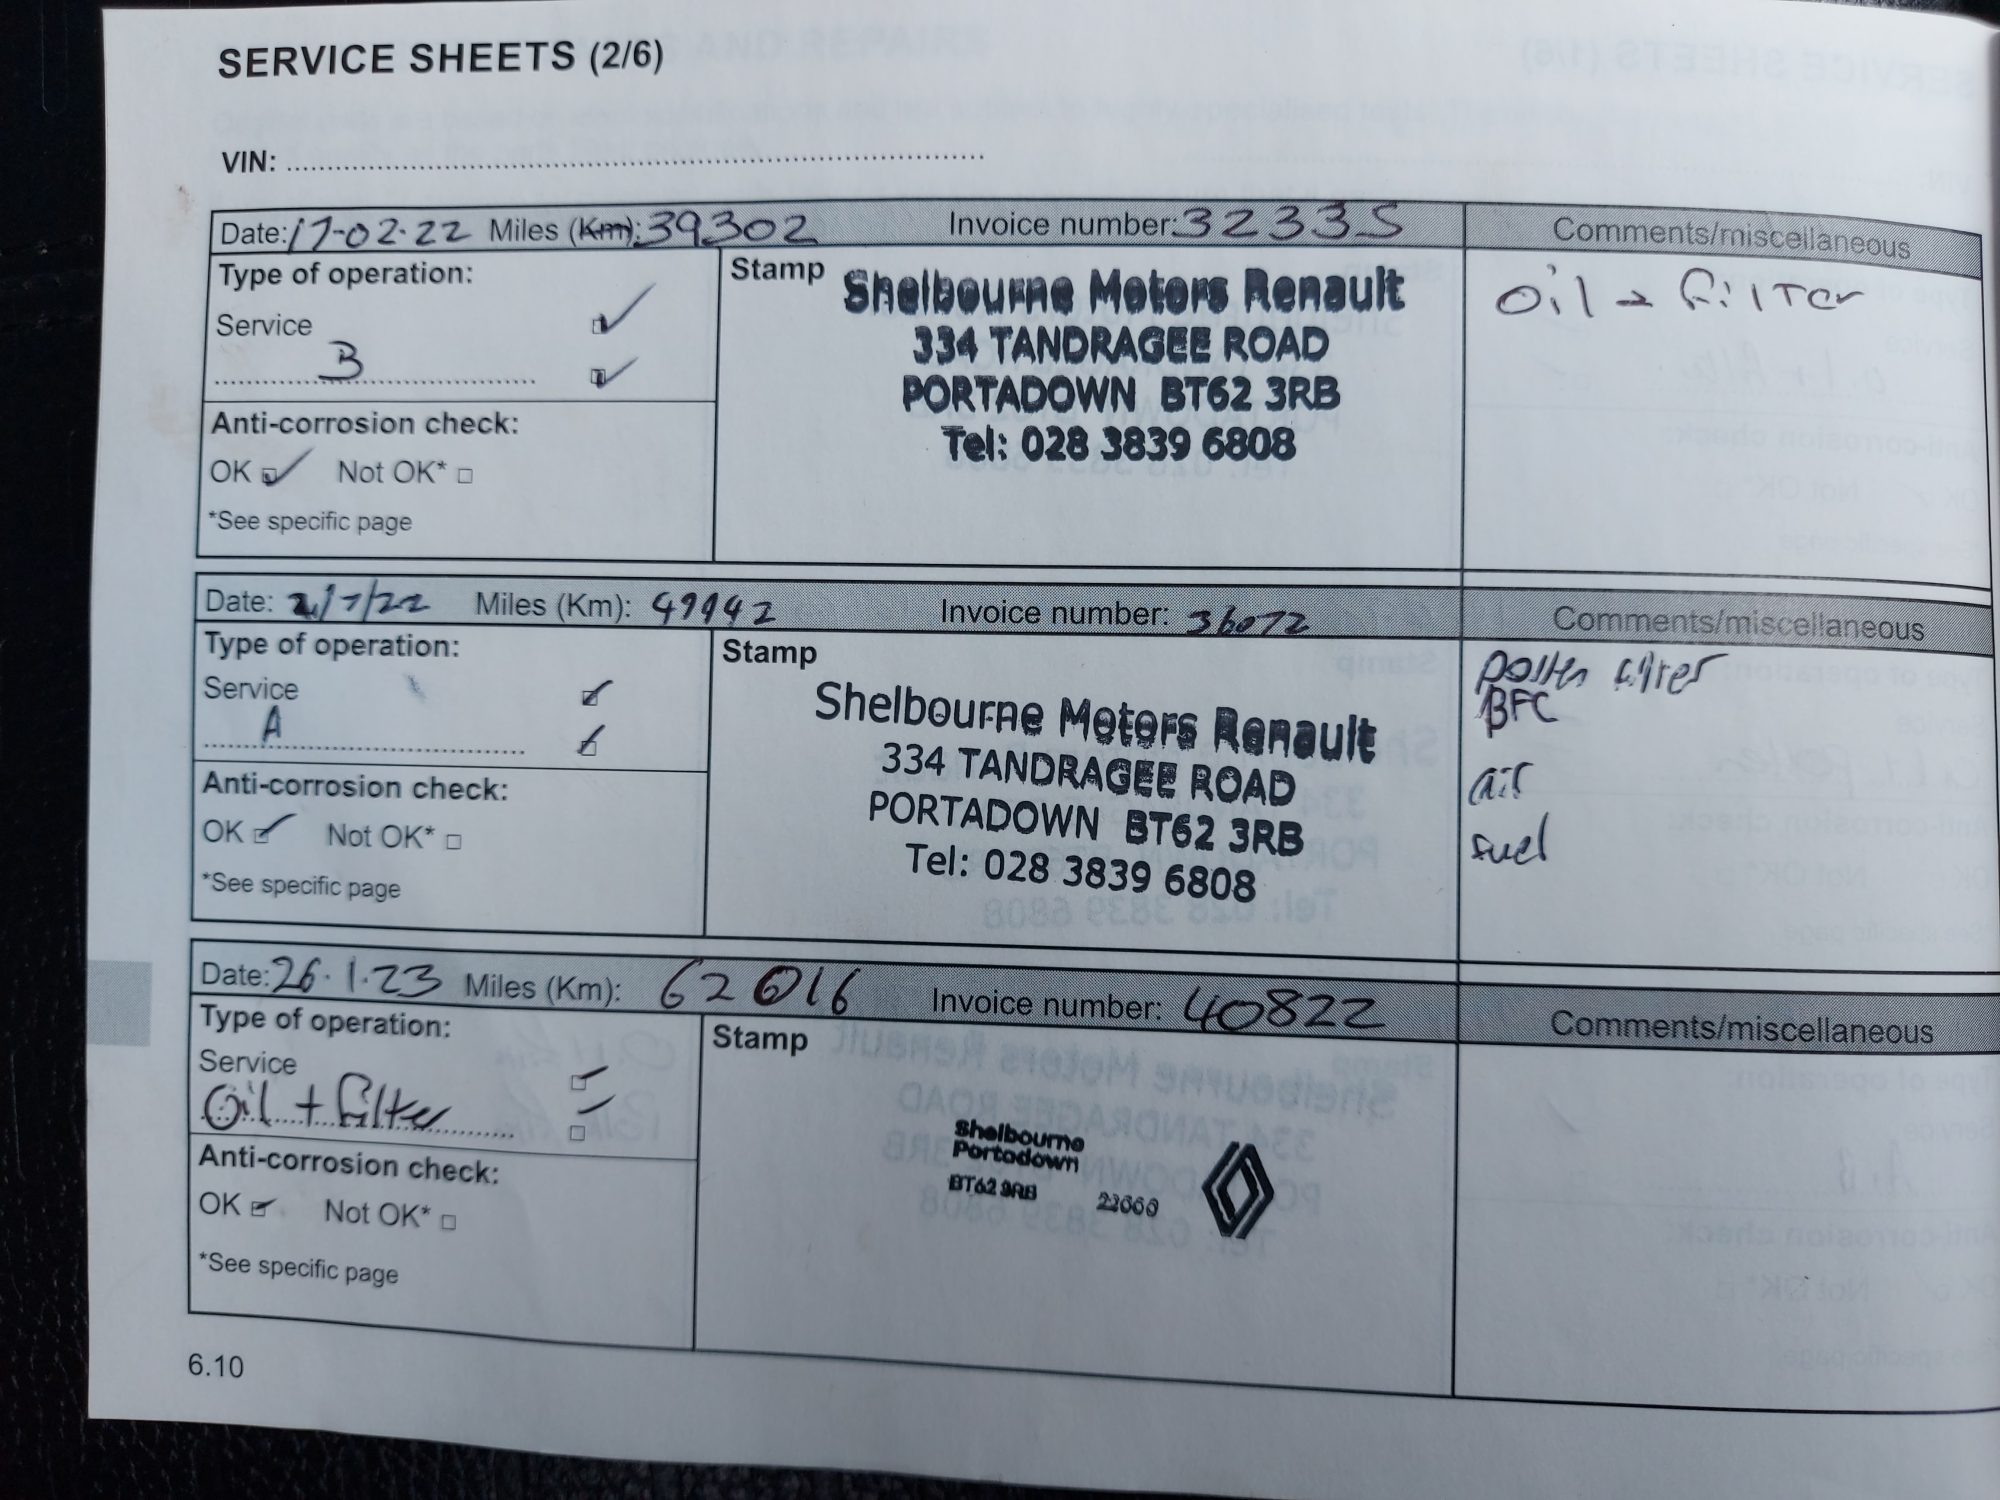 SERVICE SHEETS (2/6)
VIN:
Date: 17-02-22 Miles (Km): 39302 Invoice number: 32335 Comments/miscellaneous
Type of operation:
Service
B
Anti-corrosion check:
OK Not OK*
*See specific page
Stamp
Shelbourne Motors Renault
334 TANDRAGEE ROAD
PORTADOWN BT62 3RB
Tel: 028 3839 6808
Oil + Filter
Date: 21/7/22 Miles (Km): 49942 Invoice number: 36072 Comments/miscellaneous
Type of operation:
Service
A
Anti-corrosion check:
OK Not OK*
*See specific page
Stamp
Shelbourne Motors Renault
334 TANDRAGEE ROAD
PORTADOWN BT62 3RB
Tel: 028 3839 6808
Pollen filter
BFC
air
fuel
Date: 26.1.23 Miles (Km): 62016 Invoice number: 40822 Comments/miscellaneous
Type of operation:
Service
Oil + Filter
Anti-corrosion check:
OK Not OK*
*See specific page
Stamp
Shelbourne
Portadown
BT62 3RB
6.10